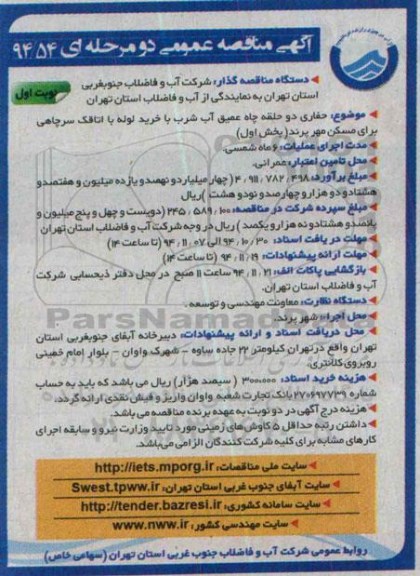 آگهی مناقصه عمومی دو مرحله ای ۵۴ ۹۴
نوبت اول
دستگاه مناقصه گذار: شرکت آب و فاضلاب جنوبغربی
استان تهران به نمایندگی از آب و فاضلاب استان تهران
موضوع: حفاری دو حلقه چاه عمیق آب شرب با خرید لوله با اتاقک سرچاهی
برای مسکن مهر پرند (بخش اول)
مدت اجرای عملیات: ۶ ماه شمسی.
محل تامین اعتبار: عمرانی.
مبلغ برآورد: ۴،۹۱۱،۷۸۲،۴۹۸ (چهار میلیارد و نهصد و یازده میلیون و هفتصد و
هشتاد و دو هزار و چهارصد و نود و هشت) ریال
مبلغ سپرده شرکت در مناقصه: ۲۴۵،۵۸۹،۱۰۰ (دویست و چهل و پنج میلیون و
پانصد و هشتاد و نه هزار و یکصد) ریال در وجه شرکت آب و فاضلاب استان تهران
مهلت دریافت اسناد: ۹۴،۱۰،۳۰ الی ۹۴،۱۱،۰۷ (تا ساعت ۱۴)
مهلت ارائه پیشنهادات: ۹۴،۱۱،۱۹ (تا ساعت ۱۴)
بازگشایی پاکات الف: ۹۴،۱۱،۲۱ ساعت ۱۱ صبح در محل دفتر ذیحسابی شرکت
آب و فاضلاب استان تهران.
دستگاه نظارت: معاونت مهندسی و توسعه.
محل اجرا: شهر پرند.
محل دریافت اسناد و ارائه پیشنهادات: دبیرخانه آبفای جنوبغربی استان
تهران واقع در تهران کیلومتر ۲۲ جاده ساوه - شهرک واوان - بلوار امام خمینی
روبروی کلانتری.
هزینه خرید اسناد: ۳۰۰،۰۰۰ (سیصد هزار) ریال می باشد که باید به حساب
شماره ۲۷۰۶۹۷۷۳۹ بانک تجارت شعبه واوان واریز و فیش نقدی ارائه گردد.
هزینه درج آگهی در دو نوبت به عهده برنده مناقصه می باشد.
داشتن رتبه حداقل ۵ کاوش های زمینی مورد تایید وزارت نیرو و سابقه اجرای
کارهای مشابه برای کلیه شرکت کنندگان الزامی می باشد.
سایت ملی مناقصات: http://iets.mporg.ir
سایت آبفای جنوب غربی استان تهران: Swest.tpww.ir
سایت سامانه کشوری: http://tender.bazresi.ir
سایت مهندسی کشور: www.nww.ir
روابط عمومی شرکت آب و فاضلاب جنوب غربی استان تهران (سهامی خاص)